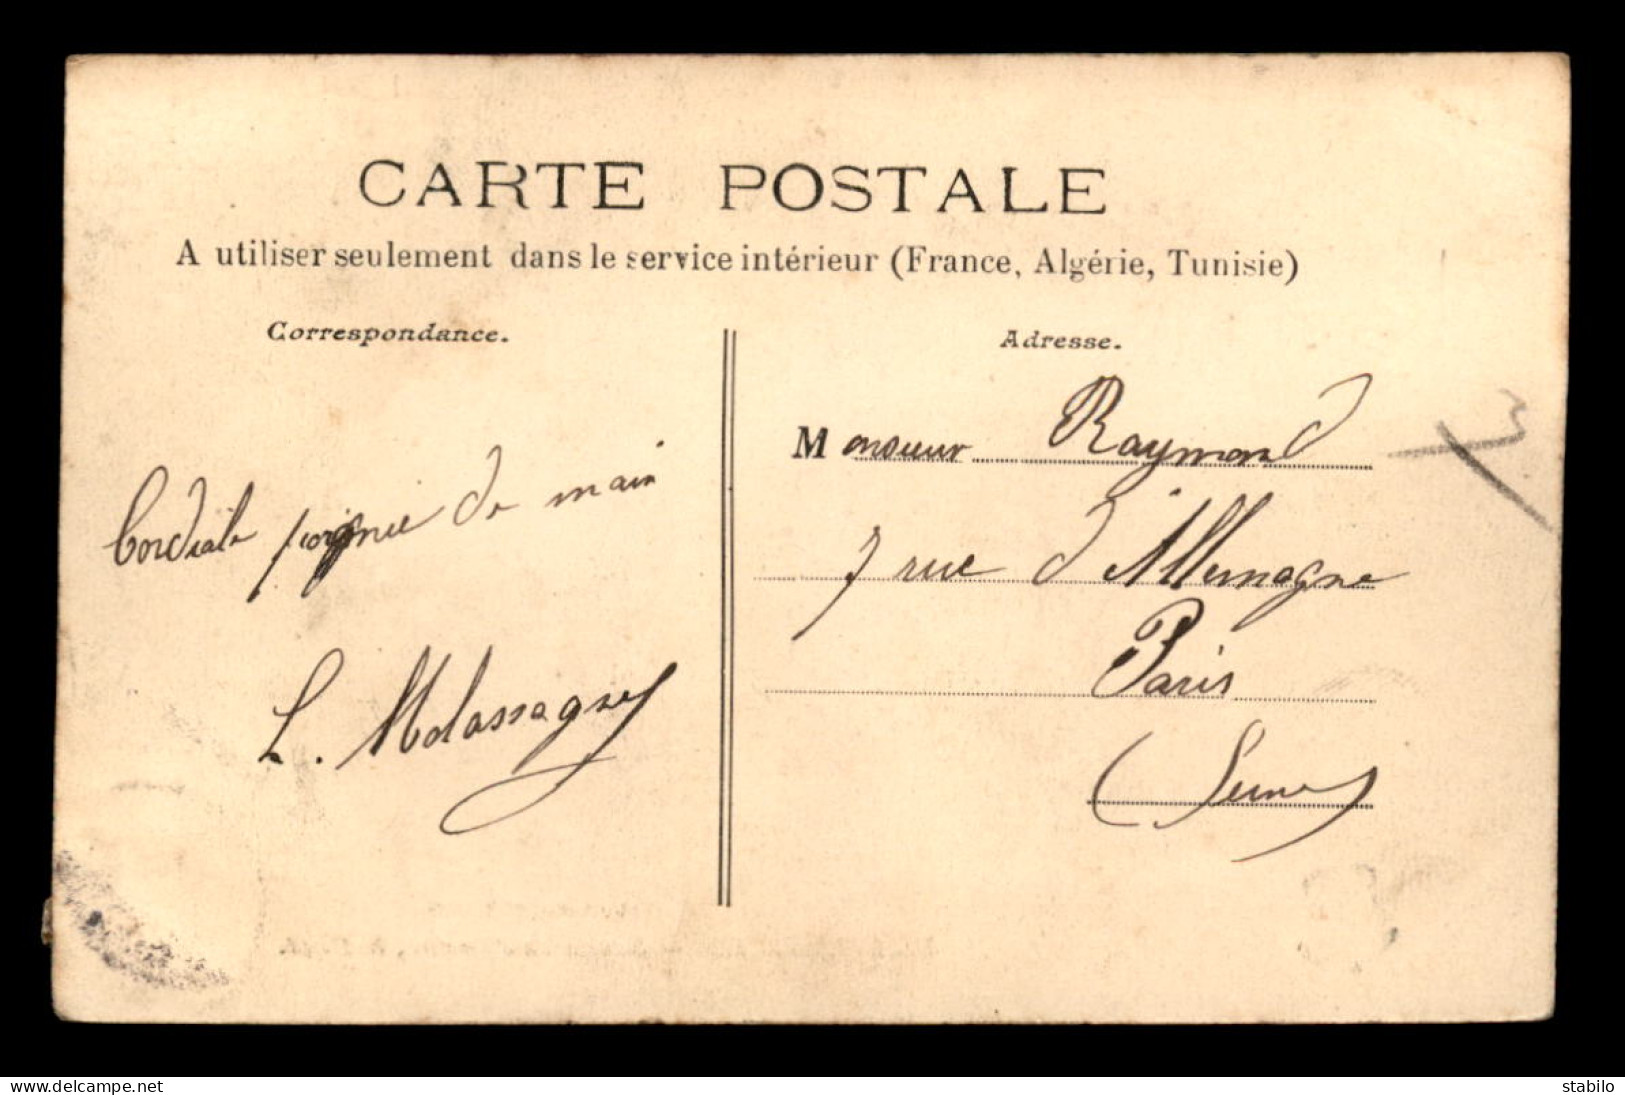 CARTE POSTALE
A utiliser seulement dans le service intérieur (France, Algérie, Tunisie)
Correspondance.
Cordiale poignée de main
L. Molassagne
Adresse.
Monsieur Raymond
7 rue d'Allemagne
Paris
(Seine)
www.delcampe.net
stabilo